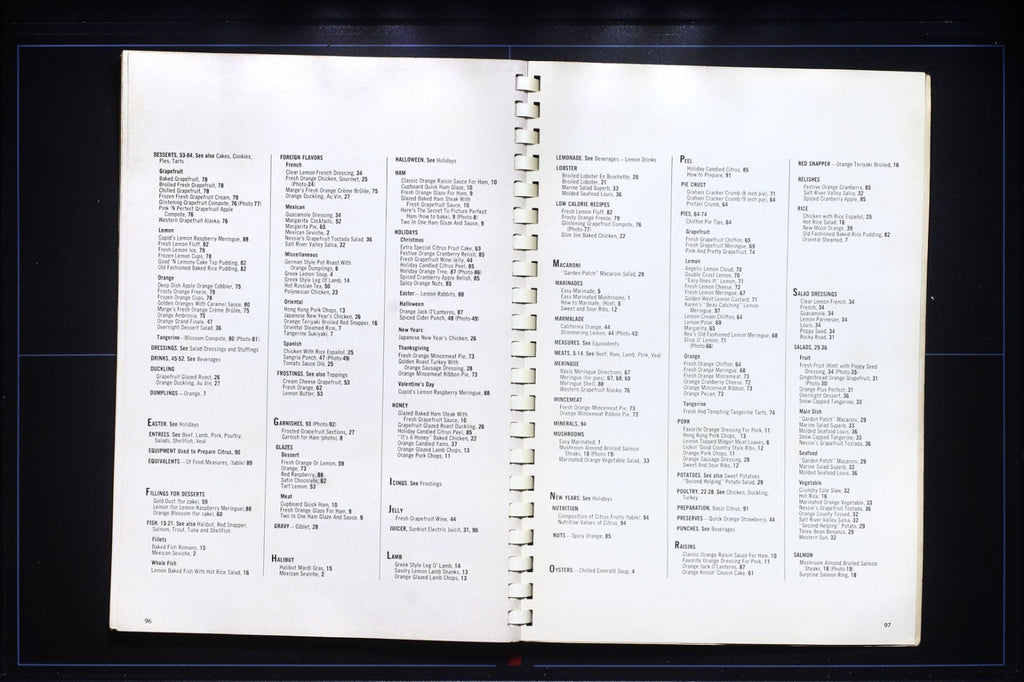 DESSERTS, 53-84. See also Cakes, Cookies,
Pies, Tarts
Grapefruit
Baked Grapefruit, 78
Broiled Fresh Grapefruit, 78
Chilled Grapefruit, 78
Frozen Fresh Grapefruit Cream, 79
Glistening Grapefruit Compote, 76 (Photo 77)
Pink 'N Perfect Grapefruit Apple
Compote, 76
Western Grapefruit Alaska, 76
Lemon
Cupid's Lemon Raspberry Meringue, 88
Fresh Lemon Fluff, 82
Fresh Lemon Ice, 79
Frozen Lemon Cups, 78
Good 'N Lemony Cake Top Pudding, 82
Old Fashioned Baked Rice Pudding, 82
Orange
Deep Dish Apple Orange Cobbler, 75
Frosty Orange Freeze, 79
Frozen Orange Cups, 78
Golden Oranges With Caramel Sauce, 80
Marge's Fresh Orange Crème Brûlée, 75
Orange Ambrosia, 75
Orange Grand Finale, 47
Overnight Dessert Salad, 36
Tangerine – Blossom Compote, 80 (Photo 81)
DRESSINGS. See Salad Dressings and Stuffings
DRINKS, 45-52. See Beverages
DUCKLING
Grapefruit Glazed Roast, 26
Orange Duckling, Au Vin, 27
DUMPLINGS – Orange, 7
EASTER. See Holidays
ENTREES. See Beef, Lamb, Pork, Poultry,
Salads, Shellfish, Veal
EQUIPMENT Used to Prepare Citrus, 90
EQUIVALENTS – Of Food Measures, (table) 89
FILLINGS FOR DESSERTS
Gold Dust (for cake), 59
Lemon (for Lemon Raspberry Meringue), 88
Orange Blossom (for cake), 60
FISH, 15-21. See also Halibut, Red Snapper,
Salmon, Trout, Tuna and Shellfish
Fillets
Baked Fish Romano, 15
Mexican Seviche, 2
Whole Fish
Lemon Baked Fish With Hot Rice Salad, 16
96
FOREIGN FLAVORS
French
Clear Lemon French Dressing, 34
Fresh Orange Chicken, Gourmet, 25
(Photo 24)
Marge's Fresh Orange Crème Brûlée, 75
Orange Duckling, Au Vin, 27
Mexican
Guacamole Dressing, 34
Margarita Cocktails, 52
Margarita Pie, 65
Mexican Seviche, 2
Nessie's Grapefruit Tostada Salad, 36
Salt River Valley Salsa, 32
Miscellaneous
German Style Pot Roast With
Orange Dumplings, 6
Greek Lemon Soup, 4
Greek Style Leg Of Lamb, 14
Hot Russian Tea, 50
Polynesian Chicken, 23
Oriental
Hong Kong Pork Chops, 13
Japanese New Year's Chicken, 26
Orange Teriyaki Broiled Red Snapper, 16
Oriental Steamed Rice, 7
Tangerine Sukiyaki, 7
Spanish
Chicken With Rice Español, 25
Sangria Punch, 47 (Photo 49)
Tomato Sauce Olé, 25
FROSTINGS. See also Toppings
Cream Cheese Grapefruit, 53
Fresh Orange, 62
Lemon Butter, 53
GARNISHES, 93 (Photo 92)
Frosted Grapefruit Sections, 27
Garnish for Ham (photo), 8
GLAZES
Dessert
Fresh Orange Or Lemon, 59
Orange, 73
Red Raspberry, 88
Satin Chocolate, 62
Tart Lemon, 53
Meat
Cupboard Quick Ham, 10
Fresh Orange Glaze For Ham, 9
Two In One Ham Glaze And Sauce, 9
GRAVY – Giblet, 28
HALIBUT
Halibut Mardi Gras, 15
Mexican Seviche, 2
HALLOWEEN. See Holidays
HAM
Classic Orange Raisin Sauce For Ham, 10
Cupboard Quick Ham Glaze, 10
Fresh Orange Glaze For Ham, 9
Glazed Baked Ham Steak With
Fresh Grapefruit Sauce, 10
Here's The Secret To Picture Perfect
Ham (how to bake), 9 (Photo 8)
Two In One Ham Glaze And Sauce, 9
HOLIDAYS
Christmas
Extra Special Citrus Fruit Cake, 63
Festive Orange Cranberry Relish, 85
Fresh Grapefruit Wine Jelly, 44
Holiday Candied Citrus Peel, 85
Holiday Orange Tree, 87 (Photo 86)
Spiced Cranberry Apple Relish, 85
Spicy Orange Nuts, 85
Easter – Lemon Rabbits, 88
Halloween
Orange Jack O'Lanterns, 87
Spiced Cider Punch, 48 (Photo 49)
New Years
Japanese New Year's Chicken, 26
Thanksgiving
Fresh Orange Mincemeat Pie, 73
Golden Roast Turkey With
Orange Sausage Dressing, 28
Orange Mincemeat Ribbon Pie, 73
Valentine's Day
Cupid's Lemon Raspberry Meringue, 88
HONEY
Glazed Baked Ham Steak With
Fresh Grapefruit Sauce, 10
Grapefruit Glazed Roast Duckling, 26
Holiday Candied Citrus Peel, 85
"It's A Honey" Baked Chicken, 22
Orange Candied Yams, 37
Orange Glazed Lamb Chops, 13
Orange Pork Chops, 11
ICINGS. See Frostings
JELLY
Fresh Grapefruit Wine, 44
JUICER, Sunkist Electric Juicit, 31, 90
LAMB
Greek Style Leg O' Lamb, 14
Savory Lemon Lamb Shanks, 13
Orange Glazed Lamb Chops, 13
LEMONADE. See Beverages – Lemon Drinks
LOBSTER
Broiled Lobster En Brochette, 20
Broiled Lobster, 21
Marine Salad Superb, 33
Molded Seafood Louis, 36
LOW CALORIE RECIPES
Fresh Lemon Fluff, 82
Frosty Orange Freeze, 79
Glistening Grapefruit Compote, 76
(Photo 77)
Slim Jim Baked Chicken, 22
MACARONI
"Garden Patch" Macaroni Salad, 29
MARINADES
Easy Marinade, 5
Easy Marinated Mushrooms, 1
How to Marinate, (Hint), 5
Sweet and Sour Ribs, 12
MARMALADE
California Orange, 44
Shimmering Lemon, 44 (Photo 43)
MEASURES. See Equivalents
MEATS, 5-14. See Beef, Ham, Lamb, Pork, Veal
MERINGUE
Basic Meringue Directions, 67
Meringue (for pies), 67, 68, 69
Meringue Shell, 88
Western Grapefruit Alaska, 76
MINCEMEAT
Fresh Orange Mincemeat Pie, 73
Orange Mincemeat Ribbon Pie, 73
MINERALS, 94
MUSHROOMS
Easy Marinated, 1
Mushroom Almond Broiled Salmon
Steaks, 18 (Photo 19)
Marinated Orange Vegetable Salad, 33
NEW YEARS. See Holidays
NUTRITION
Composition of Citrus Fruits (table), 94
Nutritive Values of Citrus, 94
NUTS – Spicy Orange, 85
OYSTERS – Chilled Emerald Soup, 4
PEEL
Holiday Candied Citrus, 85
How to Prepare, 91
PIE CRUST
Graham Cracker Crumb (8 inch pie), 71
Graham Cracker Crumb (9 inch pie), 64
Pretzel Crumb, 64
PIES, 64-74
Chiffon Pie Tips, 64
Grapefruit
Fresh Grapefruit Chiffon, 65
Fresh Grapefruit Meringue, 69
Pink And Pretty Grapefruit, 74
Lemon
Angelic Lemon Cloud, 70
Double Crust Lemon, 70
"Easy-Does-It" Lemon, 71
Fresh Lemon Cheese, 72
Fresh Lemon Meringue, 67
Golden West Lemon Custard, 71
Karen's "Beau Catching" Lemon
Meringue, 97
Lemon Cream Chiffon, 64
Lemon Polar, 69
Margarita, 65
Rex's Old Fashioned Lemon Meringue, 68
Slice O' Lemon, 71
(Photo 66)
Orange
Fresh Orange Chiffon, 64
Fresh Orange Meringue, 68
Fresh Orange Mincemeat, 73
Orange Cranberry Cheese, 72
Orange Mincemeat Ribbon, 73
Orange Pecan, 73
Tangerine
Fresh And Tempting Tangerine Tarts, 74
PORK
Favorite Orange Dressing For Pork, 11
Hong Kong Pork Chops, 13
Lemon Topped Midget Meat Loaves, 6
Lickin' Good Country Style Ribs, 12
Orange Pork Chops, 11
Orange Sausage Dressing, 28
Sweet And Sour Ribs, 12
POTATOES. See also Sweet Potatoes
"Second Helping" Potato Salad, 29
POULTRY, 22-28. See Chicken, Duckling,
Turkey
PREPARATION, Basic Citrus, 91
PRESERVES – Quick Orange Strawberry, 44
PUNCHES. See Beverages
RAISINS
Classic Orange Raisin Sauce For Ham, 10
Favorite Orange Dressing For Pork, 11
Orange Jack O'Lanterns, 87
Orange Kissin' Cousin Cake, 61
RED SNAPPER – Orange Teriyaki Broiled, 16
RELISHES
Festive Orange Cranberry, 85
Salt River Valley Salsa, 32
Spiced Cranberry Apple, 85
RICE
Chicken with Rice Español, 25
Hot Rice Salad, 16
New Moon Orange, 39
Old Fashioned Baked Rice Pudding, 82
Oriental Steamed, 7
SALAD DRESSINGS
Clear Lemon French, 34
French, 34
Guacamole, 34
Lemon Parmesan, 34
Louis, 34
Poppy Seed, 34
Rocky Road, 31
SALADS, 29-36
Fruit
Fresh Fruit (Hint) with Poppy Seed
Dressing, 34 (Photo 35)
Gingerbread Orange Grapefruit, 31
(Photo 30)
Orange Plus Perfect, 31
Overnight Dessert, 36
Snow Capped Tangerine, 33
Main Dish
"Garden Patch" Macaroni, 29
Marine Salad Superb, 33
Molded Seafood Louis, 36
Snow Capped Tangerine, 33
Nessie's Grapefruit Tostada, 36
Seafood
"Garden Patch" Macaroni, 29
Marine Salad Superb, 33
Molded Seafood Louis, 36
Vegetable
Crunchy Cole Slaw, 32
Hot Rice, 16
Marinated Orange Vegetable, 33
Nessie's Grapefruit Tostada, 36
Orange County Tossed, 32
Salt River Valley Salsa, 32
"Second Helping" Potato, 29
Three Bean Bonanza, 29
Western Sun, 32
SALMON
Mushroom Almond Broiled Salmon
Steaks, 18 (Photo 19)
Surprise Salmon Ring, 18
97